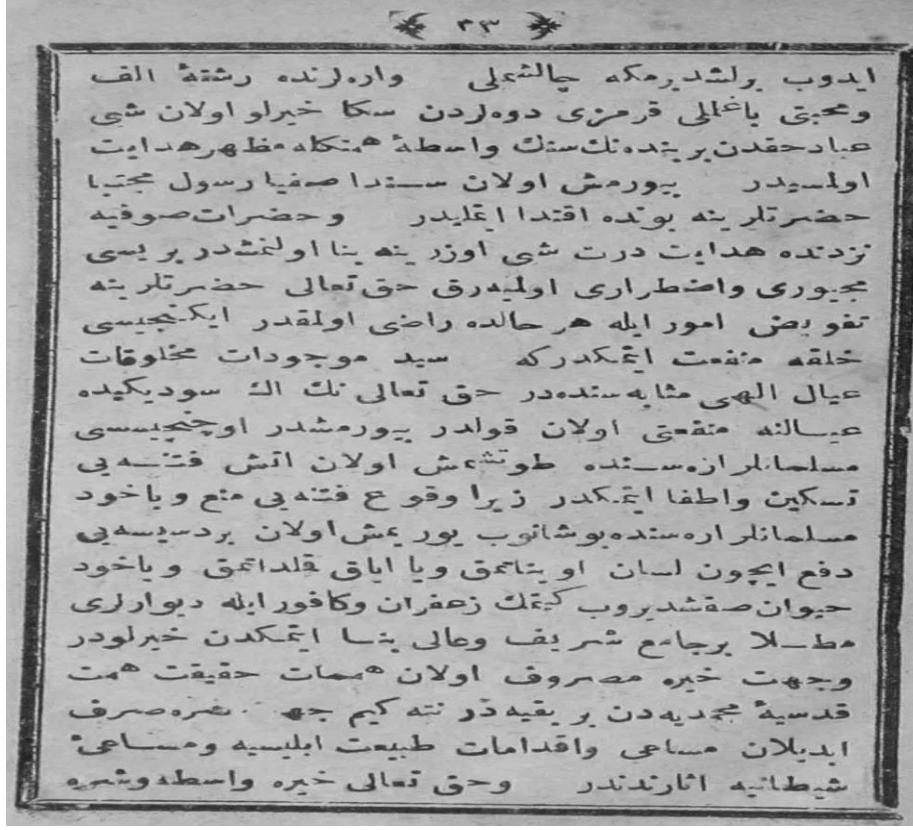 ٢٣
ايدوب برلشديرمكه چالشملى وارەلرنده رشتهٔ الف
ومحبتى باغلملى قرمزى دوەلردن سكا خيرلو اولان شى
عبادحقدن بر بندەنك سنك واسطهٔ همتكله مظهر هدايت
اولمسيدر بيورمش اولان سندا صفيا رسول مجتبا
حضرتلرينه بونده اقتدا ايتمليدر وحضرات صوفيه
نزدنده هدايت درت شى اوزرينه بنا اولنمشدر بريسى
مجبورى واضطرارى اولميەرق حق تعالى حضرتلرينه
تفويض امور ايله هر حالده راضى اولمقدر ايكنجيسى
خلقه منفعت ايتمكدركه سيد موجودات مخلوقات
عيال الهى مثابەسندەدر حق تعالى نك اك سوديكيده
عيالنه منفعتى اولان قولدر بيورمشدر اوچنجيسى
مسلمانلر ارەسنده طوتشمش اولان اتش فتنەيى
تسكين واطفا ايتمكدر زيرا وقوع فتنەيى منع وياخود
مسلمانلر ارەسنده بوشانوب يوريمش اولان بر دسيسەيى
دفع ايچون لسان اويناتمق ويا اياق قلداتمق وياخود
حيوان صقشديروب كيتمك زعفران وكافور ايله ديوارلرى
مطلا بر جامع شريف وعالى بنا ايتمكدن خيرلودر
وجهت خيره مصروف اولان همات حقيقت همت
قدسيهٔ محمديەدن بر بقيەدر نته كيم شره صرف
ايديلان مساعى واقدامات طبيعت ابليسيه ومساعئ
شيطانيه اثارندندر وحق تعالى خيره واسطه وشره